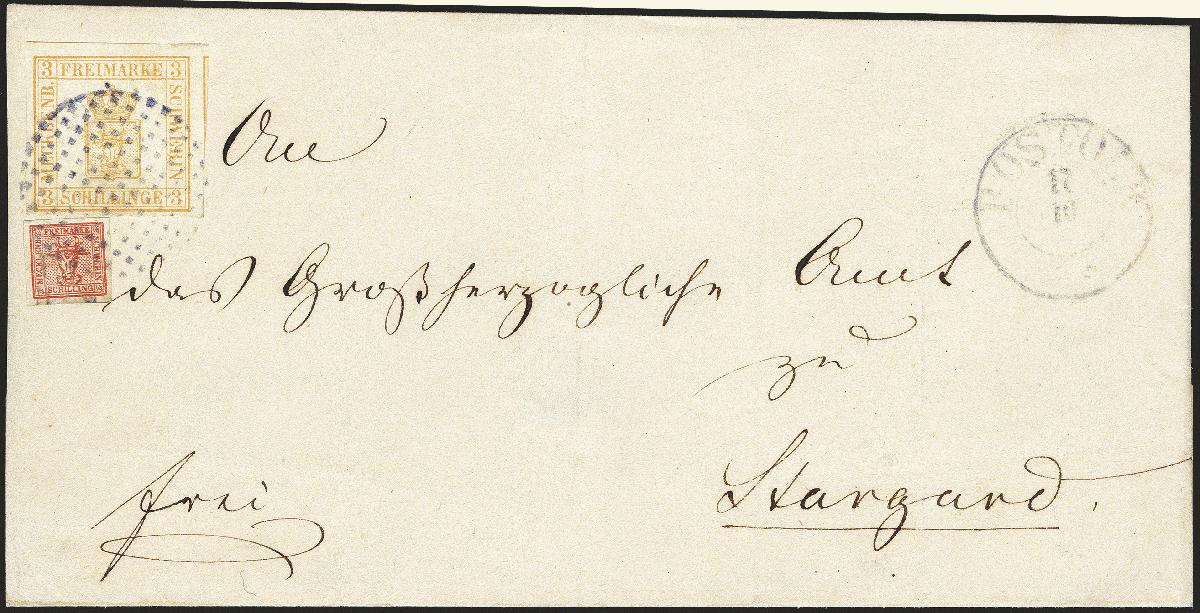 3 FREIMARKE 3
MECKLENB.
SCHWERIN
3 SCHILLINGE 3
FREIMARKE
SCHILLING
An
das Großherzogliche Amt
zu
Stargard.
frei
ROSTOCK
17